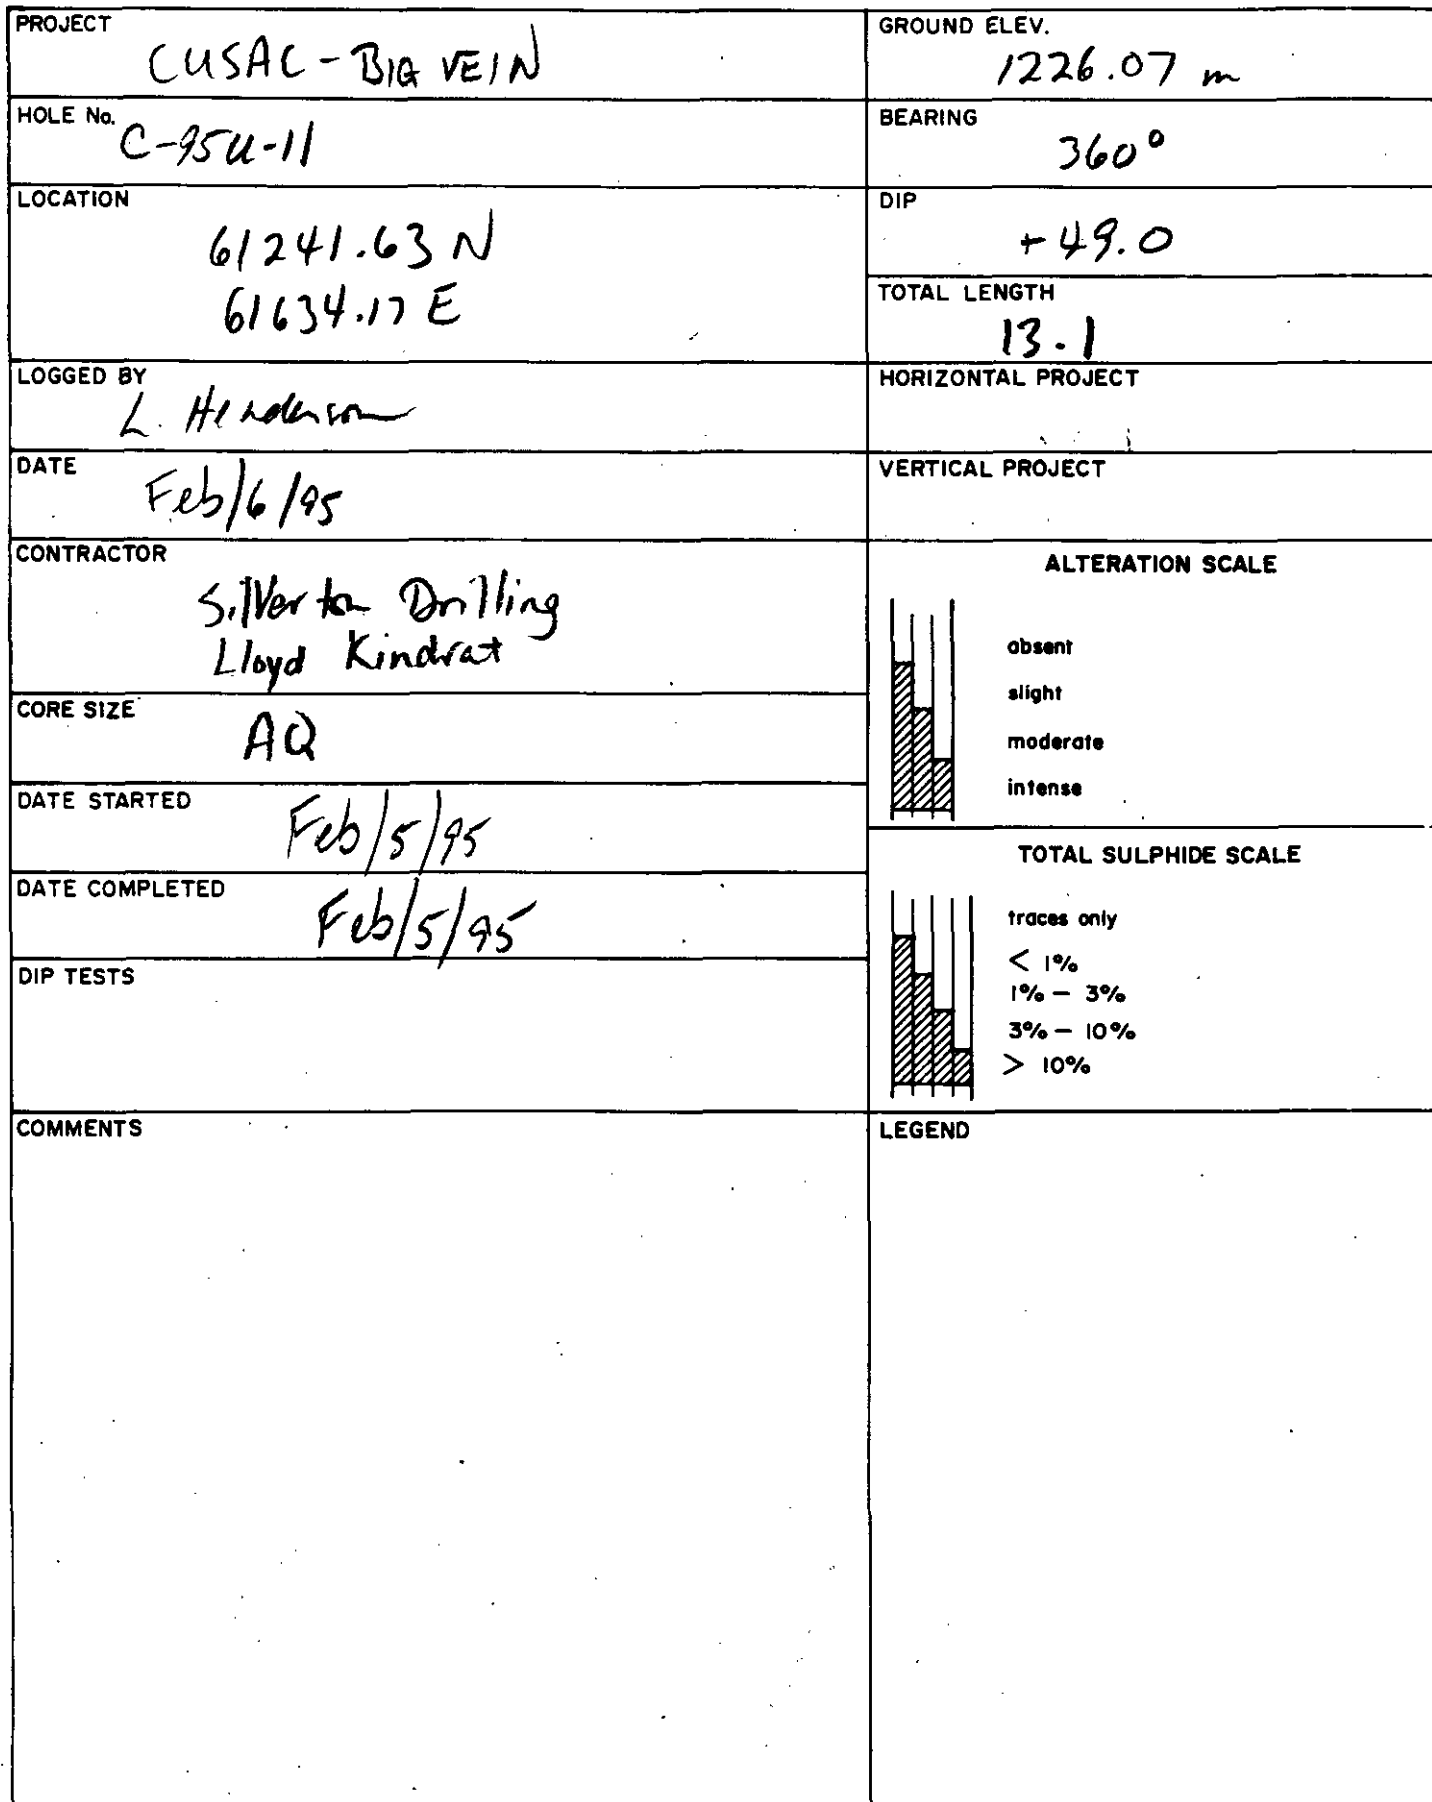 PROJECT
CUSAC - BIG VEIN
HOLE No.
C-95U-11
LOCATION
61241.63 N
61634.17 E
LOGGED BY
L. Henderson
DATE
Feb/6/95
CONTRACTOR
Silverton Drilling
Lloyd Kindrat
CORE SIZE
AQ
DATE STARTED
Feb/5/95
DATE COMPLETED
Feb/5/95
DIP TESTS
COMMENTS
GROUND ELEV.
1226.07 m
BEARING
360°
DIP
+49.0
TOTAL LENGTH
13.1
HORIZONTAL PROJECT
VERTICAL PROJECT
ALTERATION SCALE
absent
slight
moderate
intense
TOTAL SULPHIDE SCALE
traces only
< 1%
1% – 3%
3% – 10%
> 10%
LEGEND